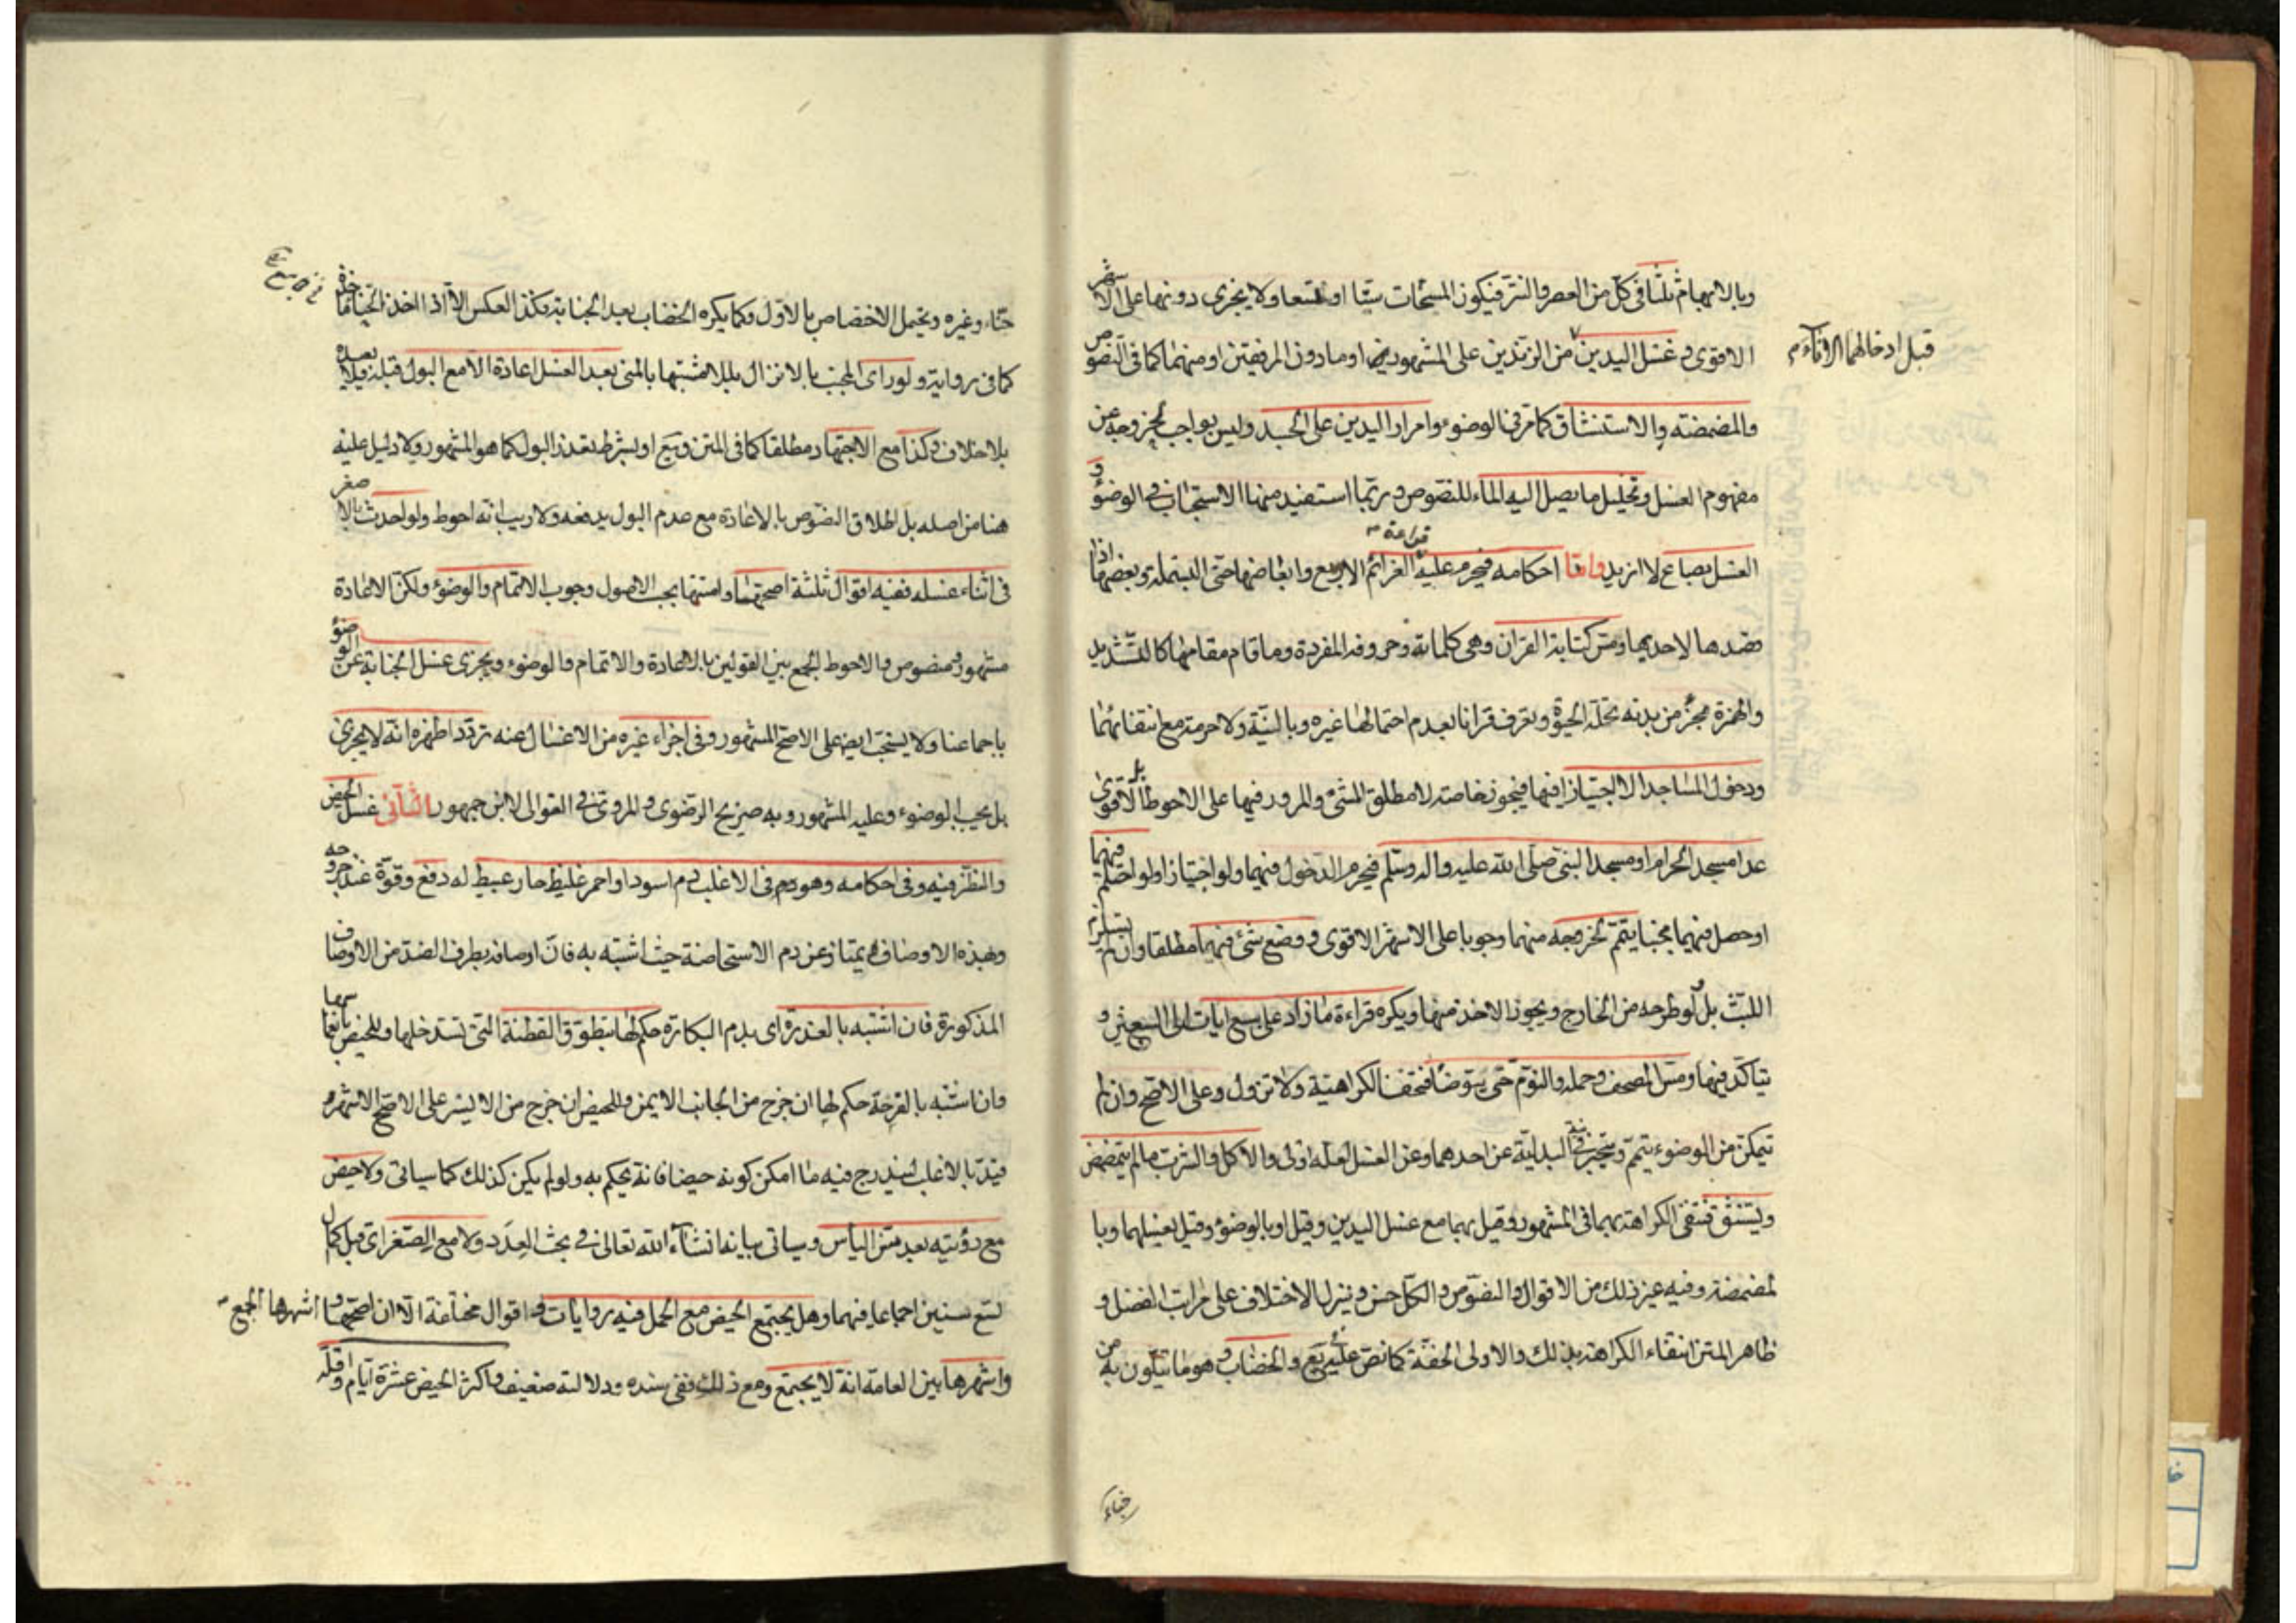 وبالابهام ثلثا في كل من العصر والنتر فيكون المسحات ستا او تسعا ولا يجزي دونها على الاشهر
الاقوى وغسل اليدين من الزندين على المشهور او ما دون المرفقين او منهما كما في النصوص
قبل ادخالهما الاناء م
والمضمضة والاستنشاق كما مر في الوضوء وامرار اليدين على الجسد وليس بواجب لخروجه عن
مفهوم الغسل وتخليل ما يصل اليه الماء للنصوص وربما استفيد منها الاستحباب في الوضوء و
الغسل بصاع لا ازيد واما احكامه فيحرم عليه قراءة العزائم الاربع وابعاضها حتى البسملة وبعضها اذا
قصدها لاحديها ومس كتابة القران وهي كلماته وحروفه المفردة وما قام مقامها كالتشديد
والهمزة بجزء من بدنه تحله الحيوة ويعرف قرانا بعدم احتمالها غيره وبالنية ولا حرمة مع انتفائهما
ودخول المساجد الا اجتيازا فيها فيجوز خاصة لا مطلق المشي والمرور فيها على الاحوط بل الاقوى
عدا مسجد الحرام او مسجد النبي صلى الله عليه واله وسلم فيحرم الدخول فيهما ولو اجتيازا ولو احتلم فيهما
او حصل فيهما مجنبا يتمم لخروجه منهما وجوبا على الاشهر الاقوى ووضع شئ فيهما مطلقا وان لم يستلزم
اللبث بل لو طرحه من الخارج ويجوز الاخذ منها ويكره قراءة ما زاد على سبع ايات الى السبعين و
يتاكد فيها ومس المصحف وحمله والنوم حتى يتوضا فتخف الكراهية ولا تزول وعلى الاصح وان لم
يتمكن من الوضوء يتمم ويتخير في نية البدلية عن احدهما وعن الغسل لعله اولى والاكل والشرب ما لم يتمضمض
ويستنشق فتنتفي الكراهة بهما في المشهور وقيل بهما مع غسل اليدين وقيل او بالوضوء وقيل بغسلهما وبا
لمضمضة وفيه غير ذلك من الاقوال والنصوص والكل حسن وينزل الاختلاف على مراتب الفضل و
ظاهر المتن انتفاء الكراهة بذلك والاولى الخفة كما نص عليه في يع والخضاب وهو ما يتلون به من
حناء
حناء وغيره ويحتمل الاختصاص بالاول وكما يكره الخضاب بعد الجنابة فكذا العكس الا اذا اخذ الحناء ماخذه
كما في رواية ولو راى المجنب بالانزال بللا مشتبها بالمني بعد الغسل اعادة الا مع البول قبله
بلا خلاف وكذا مع الاجتهاد مطلقا كما في المتن ويع او بشرط تعذر البول كما هو المشهور ولا دليل عليه
هنا من اصله بل اطلاق النصوص بالاعادة مع عدم البول يدفعه ولا ريب انه احوط ولو احدث بالاصغر
في اثناء غسله ففيه اقوال ثلثة اصحها واشبهها بحسب الاصول وجوب الاتمام والوضوء ولكن الاعادة
مشهور ومنصوص والاحوط الجمع بين القولين بالاعادة والاتمام والوضوء ويجزي غسل الجنابة عن الوضوء
باجماعنا ولا يستحب ايضا على الاصح المشهور وفي اجزاء غيره من الاغسال عنه تردد اظهره انه لا يجزي
بل يجب الوضوء وعليه المشهور وبه صريح الرضوي والمروي في الغوالي لابن جمهور الثاني غسل الحيض
والنظر فيه وفي احكامه وهو دم في الاغلب دم اسود او احمر غليظ حار عبيط له دفع وقوة عند خروجه
وبهذه الاوصاف يمتاز عن دم الاستحاضة حيث اشتبه به فان اوصافه بطرف الضد من الاوصاف
المذكورة فان اشتبه بالعذرة اي بدم البكارة حكم لها بتطوق القطنة التي تستدخلها وللحيض بانغماسها
وان اشتبه بالقرحة حكم لها ان خرج من الجانب الايمن وللحيض ان خرج من الايسر على الاصح الاشهر و
قيد بالاغلب ليندرج فيه ما امكن كونه حيضا فانه يحكم به ولو لم يكن كذلك كما سياتي ولا حيض
مع رؤيته بعد سن الياس وسياتي بيانه انشاء الله تعالى في بحث العدد ولا مع الصغر اي قبل اكمال
تسع سنين اجماعا فيهما وهل يجتمع الحيض مع الحمل فيه روايات واقوال مختلفة الا ان اصحها واشهرها الجمع
واشهرها بين العامة انه لا يجتمع ومع ذلك ففي سنده ودلالته ضعيف واكثر الحيض عشرة ايام واقله